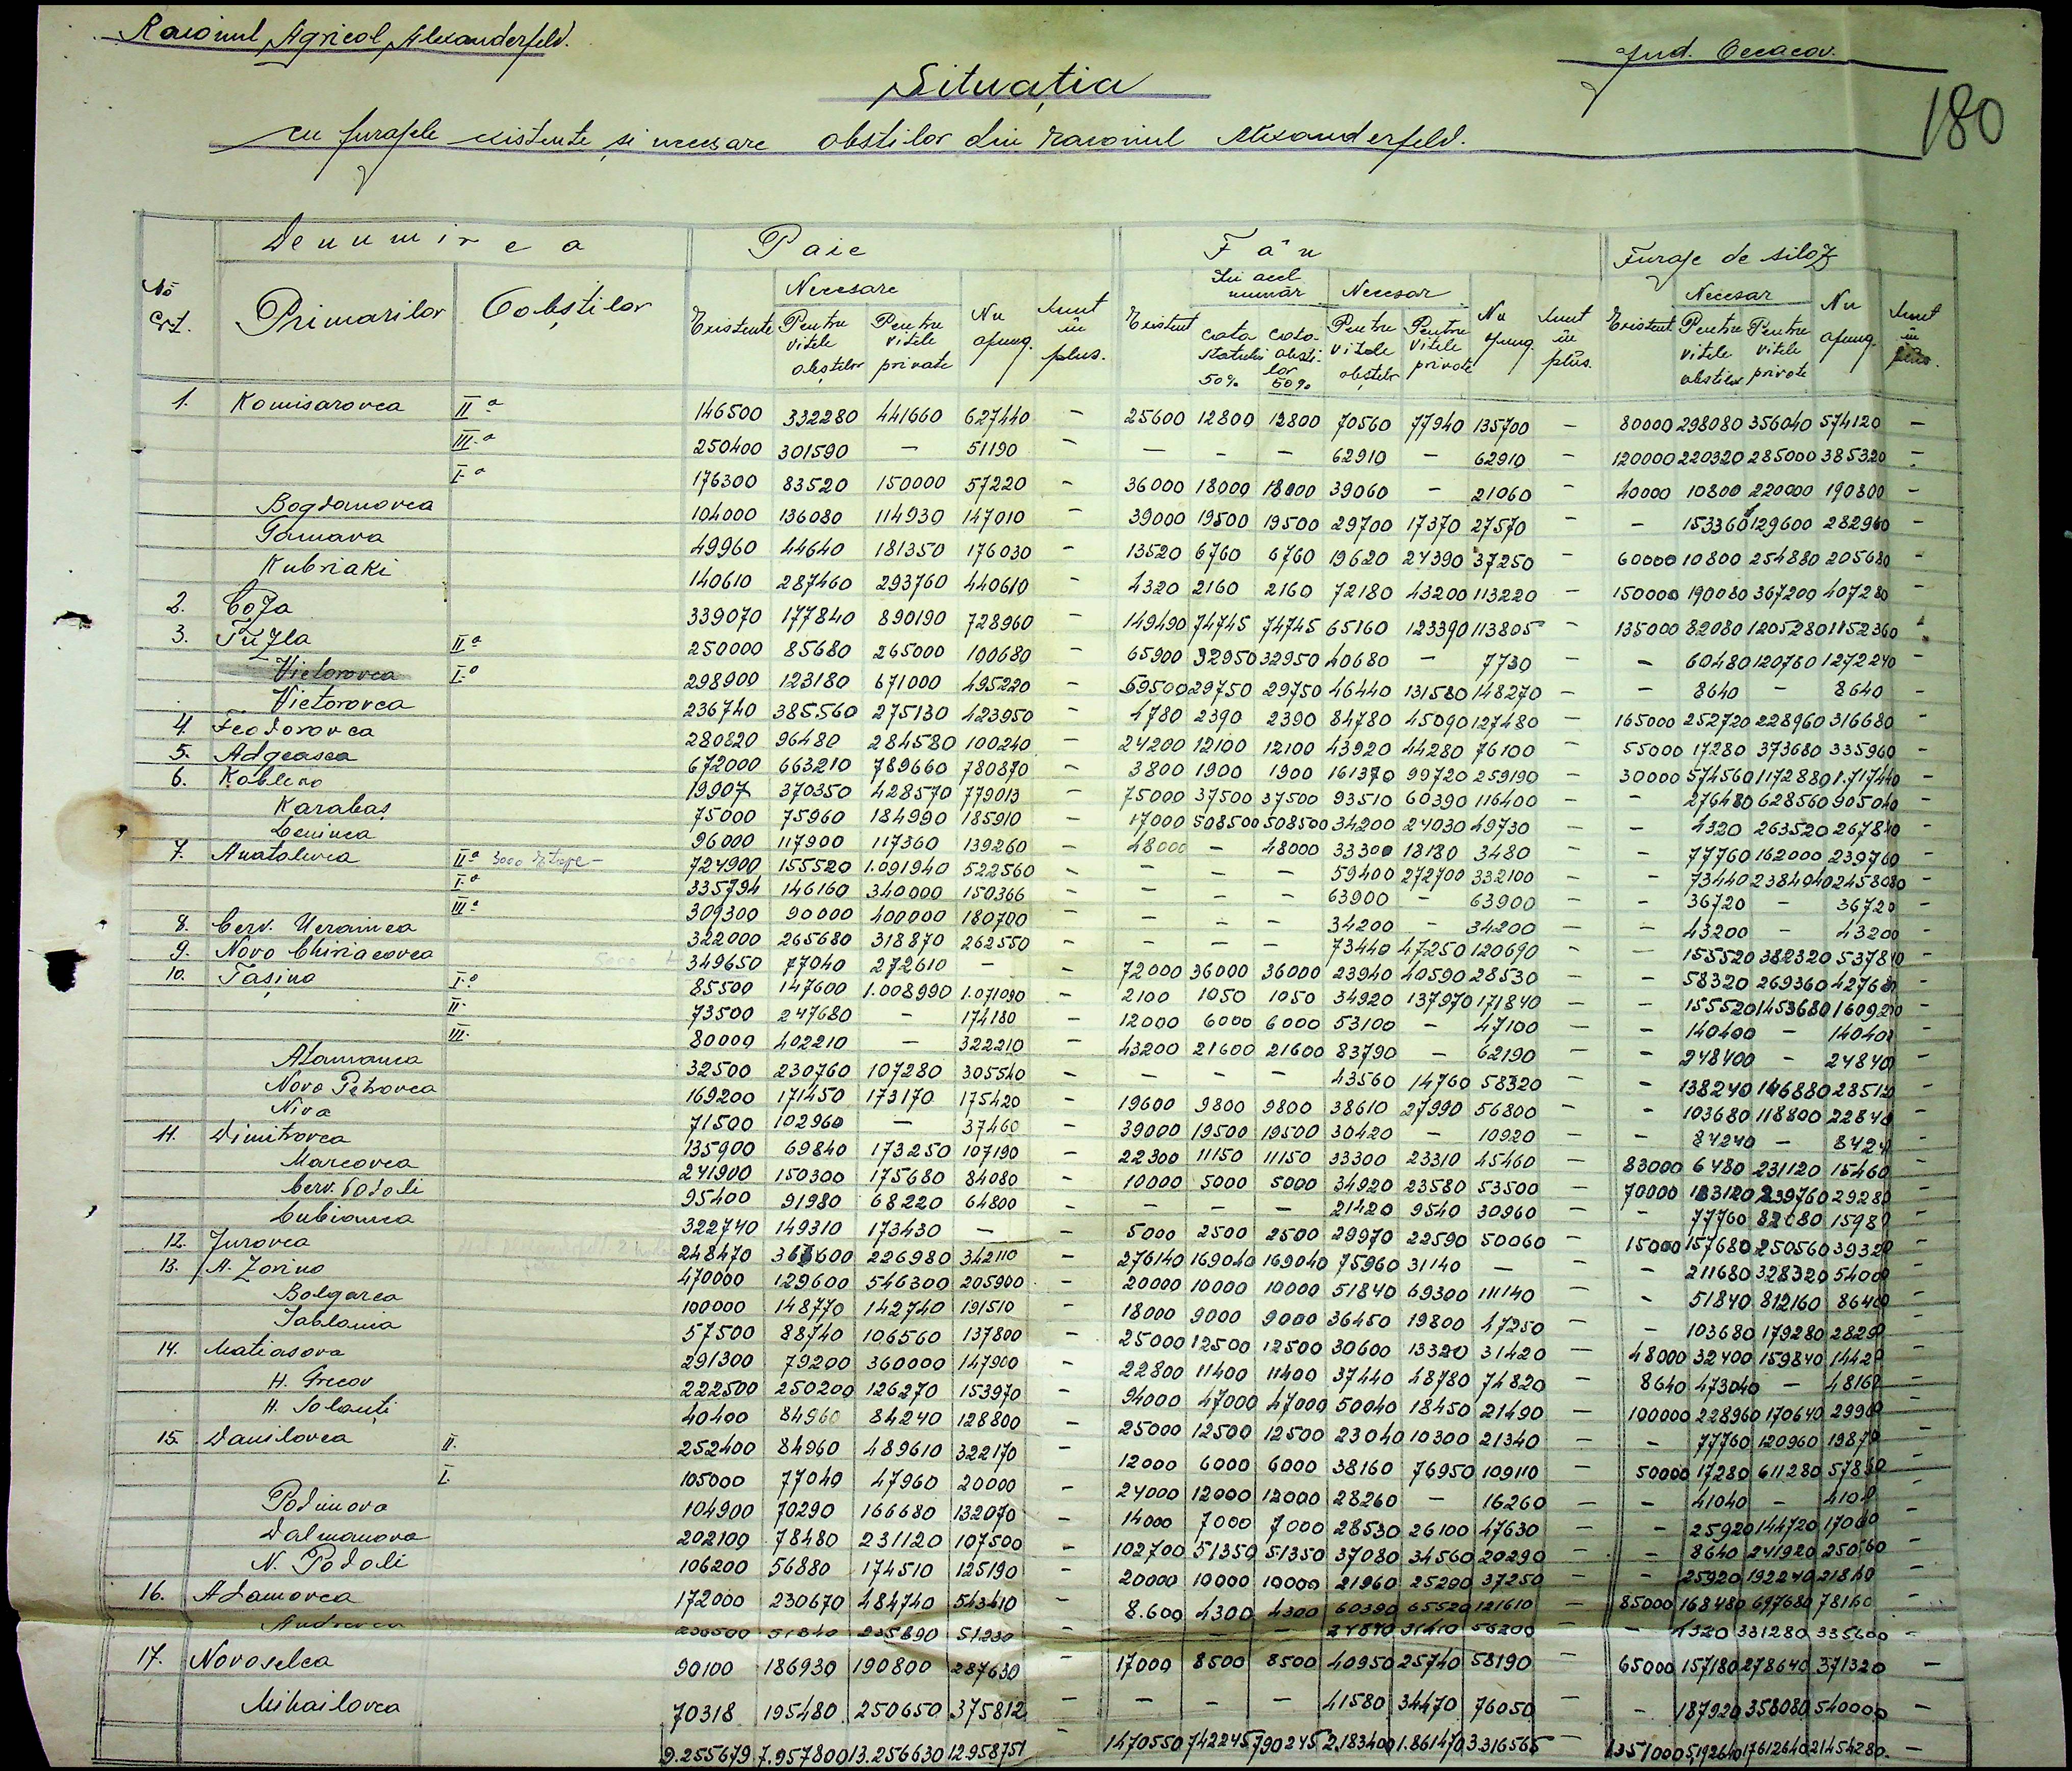 Raionul Agricol Alexanderfeld.
Jud. Oceacov.
180
Situația
cu furajele existente și necesare obștilor din raionul Alexanderfeld.
No Crt. | Denumirea | Paie | Fân | Furaje de siloz
Primarilor | Obștilor | Existente | Necesare | Nu ajung. | Sunt în plus. | Existent | Din acel număr | Necesar | Nu ajung. | Sunt în plus. | Existent | Necesar | Nu ajung. | Sunt în plus.
Pentru vitele obștilor | Pentru vitele private | cota statului 50% | cota obștilor 50% | Pentru vitele obștilor | Pentru vitele private | Pentru vitele obștilor | Pentru vitele private
1. Komisarovca IIa 146500 332280 441660 627440 - 25600 12800 12800 70560 77940 135700 - 80000 298080 356040 574120 -
III.a 250400 301590 - 51190 - - - - 62910 - 62910 - 120000 220320 285000 385320 -
I-a 176300 83520 150000 57220 - 36000 18000 18000 39060 - 21060 - 40000 10800 220000 190800 -
Bogdanovca 104000 136080 114930 147010 - 39000 19500 19500 29700 17370 27570 - - 153360 129600 282960 -
Tamara 49960 44640 181350 176030 - 13520 6760 6760 19620 24390 37250 - 60000 10800 254880 205680 -
Kubriaki 140610 287460 293760 440610 - 4320 2160 2160 72180 43200 113220 - 150000 190080 367200 407280 -
2. Coza 339070 177840 890190 728960 - 149490 74745 74745 65160 123390 113805 - 135000 82080 1205280 1152360
3. Tuzla IIa 250000 85680 265000 100680 - 65900 32950 32950 40680 - 7730 - - 60480 120780 1272240 -
Victorovca I-a 298900 123180 671000 495220 - 59500 29750 29750 46440 131580 148270 - - 8640 - 8640 -
Victorovca 236740 385560 275130 423950 - 4780 2390 2390 84780 45090 127480 - 165000 252720 228960 316680 -
4. Feodorovca 280820 96480 284580 100240 - 24200 12100 12100 43920 44280 76100 - 55000 17280 373680 335960 -
5. Adgeasca 672000 663210 789660 780870 - 3800 1900 1900 161370 99720 259190 - 30000 574560 1172880 1.717440 -
6. Koblevo 19907 370350 428570 779013 - 75000 37500 37500 93510 60390 116400 - - 276480 628560 905040 -
Karabas 75000 75960 184990 185910 - 17000 508500 508500 34200 24030 49730 - - 4320 263520 267840 -
Leninca 96000 117900 117360 139260 - 48000 - 48000 33300 18180 3480 - - 77760 162000 239760 -
7. Anatolevca IIa 3000 724900 155520 1.091940 522560 - - - - 59400 272700 332100 - - 73440 2384040 2458080 -
I-a 335794 146160 340000 150366 - - - - 63900 - 63900 - - 36720 - 36720 -
IIIa 309300 90000 400000 180700 - - - - 34200 - 34200 - - 43200 - 43200 -
8. Cerv. Ucrainca 322000 265680 318870 262550 - - - - 73440 47250 120690 - - 155520 382320 537840 -
9. Novo Chiriacovca 349650 77040 272610 - - 72000 36000 36000 23940 40590 28530 - - 58320 269360 42768 -
10. Tașino I-a 85500 147600 1.008990 1.071090 - 2100 1050 1050 34920 137970 171840 - - 155520 1453680 160920 -
II. 73500 247680 - 174180 - 12000 6000 6000 53100 - 47100 - - 140400 - 140400 -
III. 80000 402210 - 322210 - 43200 21600 21600 83790 - 62190 - - 248400 - 24840 -
Atamanca 32500 230760 107280 305540 - - - - 43560 14760 58320 - - 138240 146880 28512 -
Novo Petrovca 169200 171450 173170 175420 - 19600 9800 9800 38610 27990 56800 - - 103680 118800 22848 -
Niva 71500 102960 - 37460 - 39000 19500 19500 30420 - 10920 - - 84240 - 8424 -
11. Dimitrovca 135900 69840 173250 107190 - 22300 11150 11150 33300 23310 45460 - 83000 6480 231120 15460 -
Marcovca 241900 150300 175680 84080 - 10000 5000 5000 34920 23580 53500 - 70000 123120 239760 29288 -
Cerv. Podoli 95400 91980 68220 64800 - - - - 21420 9540 30960 - - 77760 82080 15984 -
Cubianca 322740 149310 173430 - - 5000 2500 2500 29970 22590 50060 - 15000 157680 250560 39324 -
12. Jurovca 248470 363600 226980 342110 - 276140 169040 169040 75960 31140 - - - 211680 328320 54000 -
13. A. Zorino 470000 129600 546300 205900 - 20000 10000 10000 51840 69300 111140 - - 51840 812160 86400 -
Bolgarca 100000 148770 142740 191510 - 18000 9000 9000 36450 19800 47250 - - 103680 179280 28290 -
Iablonia 57500 88740 106560 137800 - 25000 12500 12500 30600 13320 31420 - 48000 32400 159840 14424 -
14. Matiasova 291300 79200 360000 147900 - 22800 11400 11400 37440 48780 74820 - 8640 473040 - 48168 -
H. Grecov 222500 250200 126270 153970 - 94000 47000 47000 50040 18450 21490 - 100000 228960 170640 29960 -
H. Solonți 40400 84960 84240 128800 - 25000 12500 12500 23040 10300 21340 - - 77760 120960 19872 -
15. Danilovca II. 252400 84960 489610 322170 - 12000 6000 6000 38160 76950 109110 - 50000 17280 611280 57856 -
I. 105000 77040 47960 20000 - 24000 12000 12000 28260 - 16260 - - 41040 - 4104 -
Podimova 104900 70290 166680 132070 - 14000 7000 7000 28530 26100 47630 - - 25920 144720 17064 -
Dalmanova 202100 78480 231120 107500 - 102700 51350 51350 37080 34560 20290 - - 8640 241920 250560 -
N. Podoli 106200 56880 174510 125190 - 20000 10000 10000 21960 25290 37250 - - 25920 192240 21816 -
16. Adamovca 172000 230670 484740 543410 - 8.600 4300 4300 60390 65520 121610 - 85000 168480 697680 78116 -
Andreevca 236500 51840 235890 51230 - - - - 24840 31410 56200 - - 4320 331280 335600 -
17. Novoselca 90100 186930 190800 287630 - 17000 8500 8500 40950 25740 58190 - 65000 157180 278640 371320 -
Mihailovca 70318 195480 250650 375812 - - - - 41580 34470 76050 - - 187920 358080 540000 -
9.255679 7.957800 13.256630 12.958751 - 1470550 742245 790245 2.183400 1.861470 3.316565 - 1351000 5192640 17612640 21454280 -